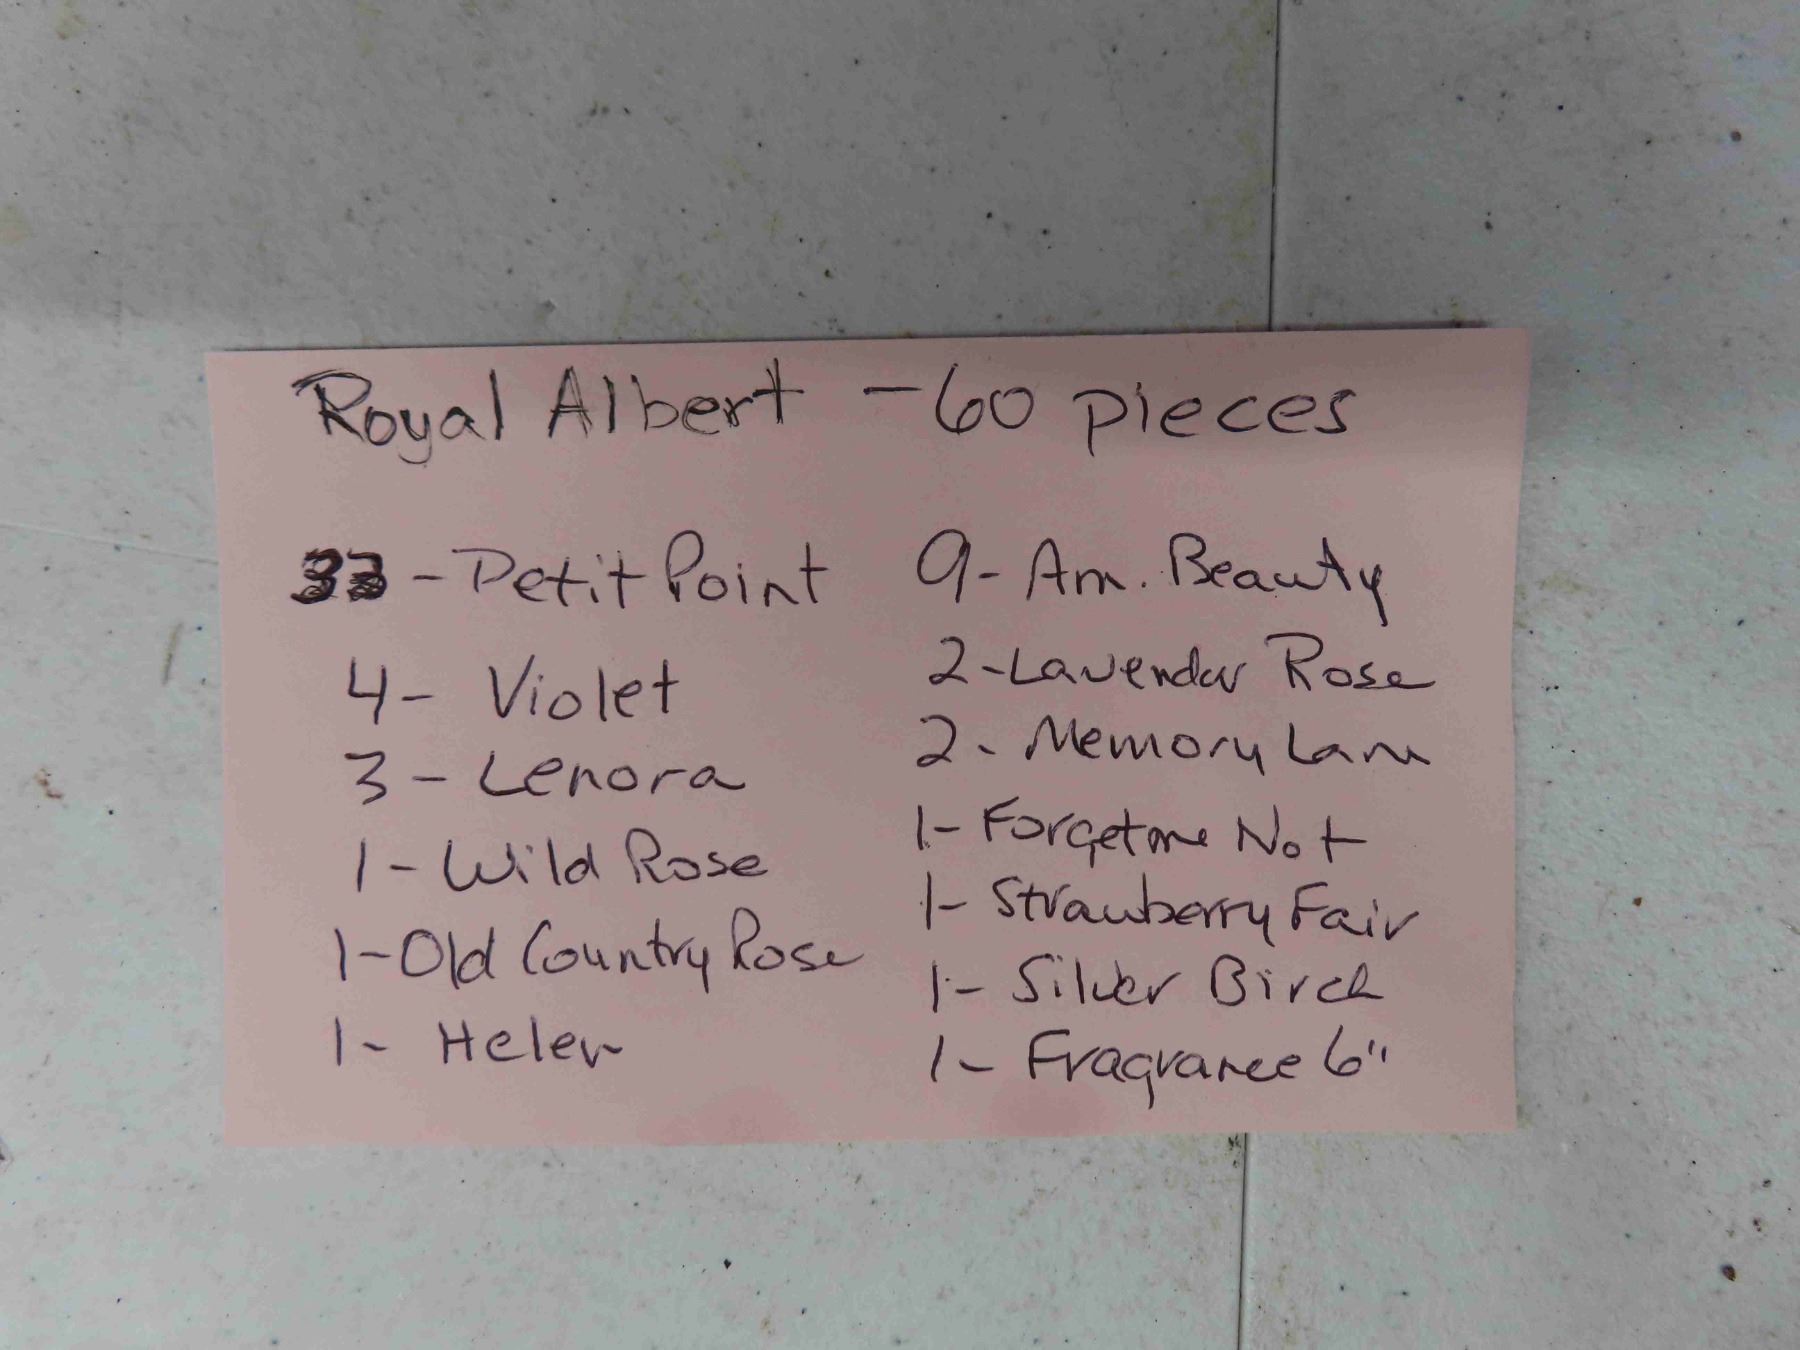 Royal Albert - 60 pieces
33 - Petit Point
4 - Violet
3 - Lenora
1 - Wild Rose
1 - Old Country Rose
1 - Helen
9 - Am. Beauty
2 - Lavender Rose
2 - Memory Lane
1 - Forgetme Not
1 - Strawberry Fair
1 - Silver Birch
1 - Fragrance 6"